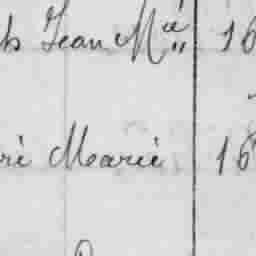 Jean Mie 16
Marie 16